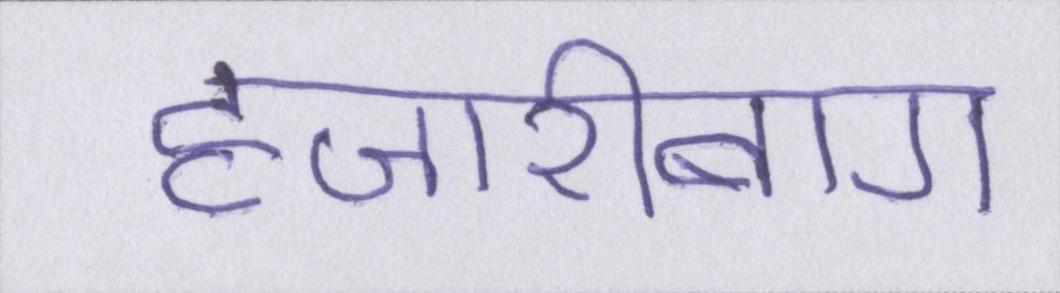 हजारीबाग